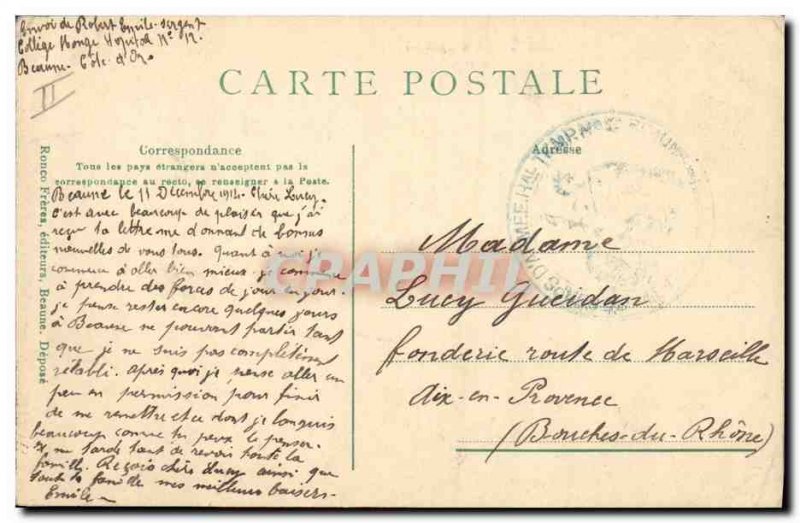 Envoi de Robert Emile-sergent
Collège Monge Hopital N° 12.
Beaune. Côte d'Or
II
CARTE POSTALE
Correspondance
Tous les pays étrangers n'acceptent pas la
correspondance au recto, se renseigner à la Poste.
Adresse
Beaune le 11 Décembre 1914. Chère Lucy.
C'est avec beaucoup de plaisir que j'ai
reçu la lettre me donnant de bonnes
nouvelles de vous tous. Quant à moi j'
commence à aller bien mieux. je commence
à prendre des forces de jour en jour.
je pense rester encore quelques jours
à Beaune ne pouvant partir tant
que je ne suis pas complètement
rétabli. Après quoi je pense aller un
peu en permission pour finir
de me remettre et ce dont je languis
beaucoup comme tu peux le penser.
me tarde tant de revoir toute la
famille. Reçois chère Lucy ainsi que
toute la famille mes meilleurs baisers.
Emile
Madame
Lucy Gueidan
fonderie route de Marseille
Aix-en-Provence
(Bouches-du-Rhône)
Ronco Frères, éditeurs, Beaune. Déposé
CPAPHIL